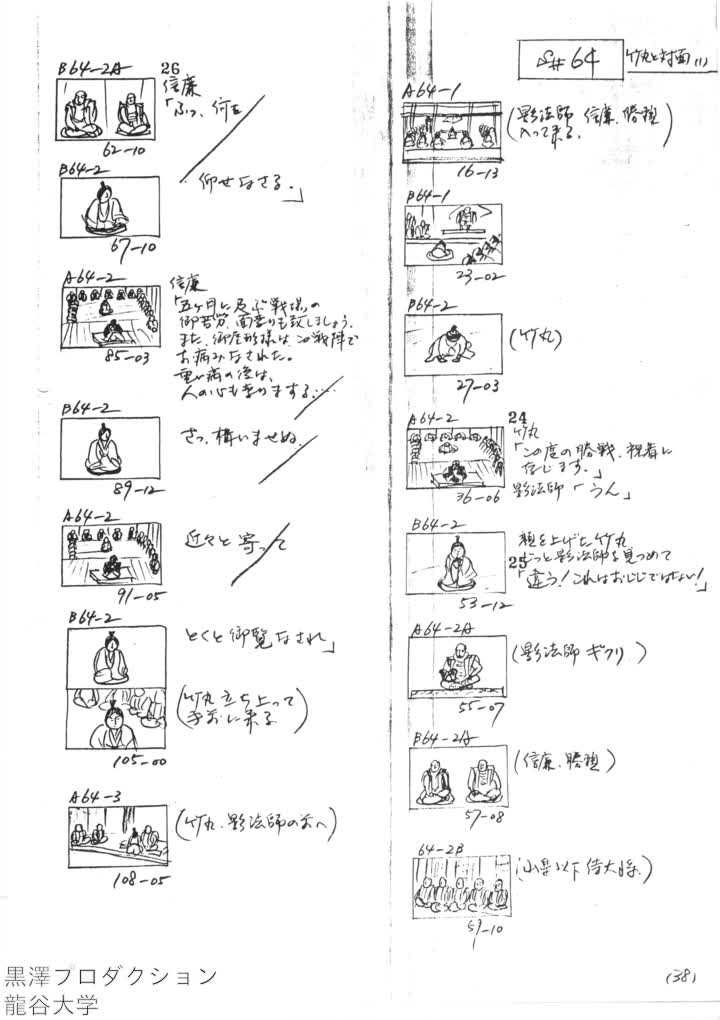 S#64
竹丸と対面(1)
A64-1
(影法師 信廉、勝頼
入って来る。)
16-13
B64-1
23-02
B64-2
(竹丸)
27-03
A64-2
24
竹丸
「この度の勝戦、祝着に
存じます。」
影法師「うん」
36-06
B64-2
顔を上げた竹丸
25
じっと影法師を見つめて
「違う!これはおじじではない!」
53-12
A64-2A
(影法師 ギクリ)
55-07
B64-2A
(信廉、勝頼)
57-08
64-2B
(山県以下侍大将)
59-10
(38)
B64-2A
26
信廉
「ふっ、何を
62-10
B64-2
仰せなさる。」
67-10
A64-2
信廉
「五ヶ月に及ぶ戦
御苦労、面変りも致しましょう。
また、御屋形様は、この戦陣で
お病みなされた。
重い病の後は、
人の心も変りまする…
85-03
B64-2
さっ、構いませぬ。
89-12
A64-2
近々と寄って
91-05
B64-2
とくと御覧なされ」
(竹丸立ち上って
手前に来る)
105-00
A64-3
(竹丸、影法師の前へ)
108-05
黒澤プロダクション
龍谷大学